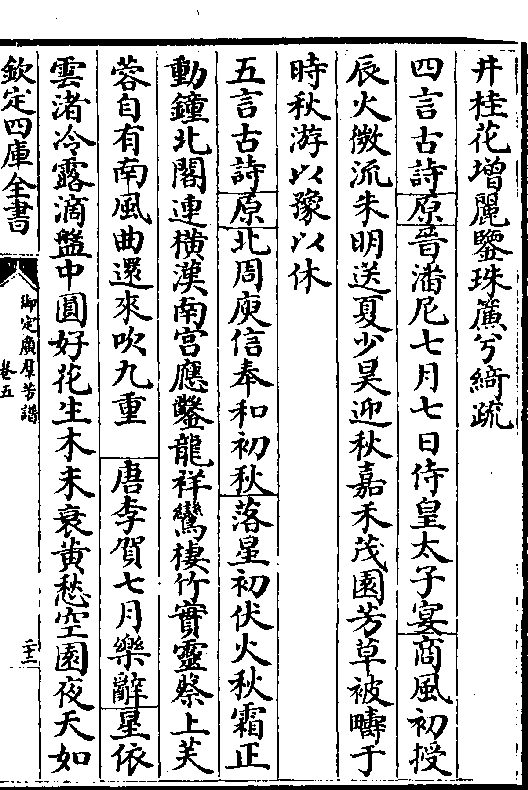 井桂花增麗鑒珠簾兮綺疏
四言古詩原晉潘尼七月七日侍皇太子宴商風初授
辰火微流朱明送夏少昊迎秋嘉禾茂園芳草被疇于
時秋游以豫以休
五言古詩原北周庾信奉和初秋落星初伏火秋霜正
動鍾北閣連横漢南宫應鑿龍祥鸞棲竹實靈蔡上芙
蓉自有南風曲還來吹九重 唐李賀七月樂辭星依
雲渚冷露滴盤中圓好花生木末衰黄愁空園夜天如
欽定四庫全書
御定廣羣芳譜
卷五
二十二